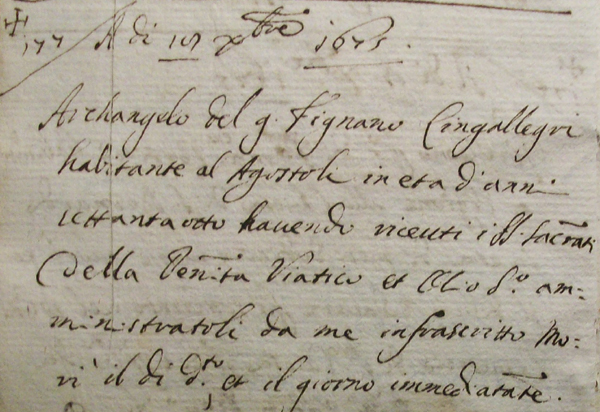 177 A di 10 xbre 1675.
Archangelo del q. Fignano Cingallegri
habitante al Agostoli in eta d'anni
settantaotto havendo riceuti i SS. Sacrati
della Penita Viatico et Olio So. am=
ministratoli da me infrascritto Mo=
rì il di dto, et il giorno immediatate.